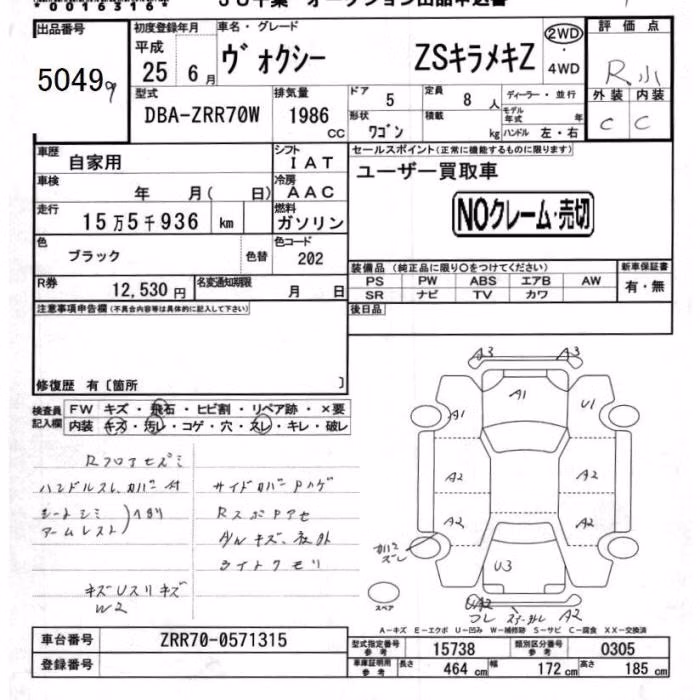 *00163164*
JU千葉 オークション出品申込書
出品番号
5049
9
初度登録年月
平成
25 年 6 月
車名・グレード
ヴォクシー ZSキラメキZ
2WD
・
4WD
評価点
R 小
外装 内装
C C
型式
DBA-ZRR70W
排気量
1986 cc
ドア 5
定員 8 人
形状 ワゴン
積載 kg
ディーラー・並行
モデル年式 年
ハンドル 左・右
車歴 自家用
シフト IAT
車検 年 月( 日)
冷房 AAC
走行 15万5千936 km
燃料 ガソリン
色 ブラック 色替
色コード 202
R券 12,530円
名変通知期限 月 日
セールスポイント(正常に機能するものに限ります)
ユーザー買取車
NOクレーム・売切
装備品(純正品に限り○をつけてください)
PS PW ABS エアB AW
SR ナビ TV カワ
新車保証書
有・無
後日品
注意事項申告欄(不具合内容等は具体的に記入して下さい)
修復歴 有〔箇所 〕
検査員記入欄
FW キズ・飛石・ヒビ割・リペア跡・×要
内装 キズ・汚レ・コゲ・穴・スレ・キレ・破レ
ハンドルスレ、カバー付
シートシミ
アームレスト
キズ、
ライトクモリ
キズ
W2
A3 A3
A1
A1 U1
A2 A2
A2 A2
カバーズレ
U3
A2
スペア
A2
A-キズ E-エクボ U-凹み W-補修跡 S-サビ C-腐食 XX-交換済
車台番号 ZRR70-0571315
登録番号
型式指定番号 参考 15738
類別区分番号 参考 0305
車庫証明用 参考 長さ 464 cm 幅 172 cm 高さ 185 cm